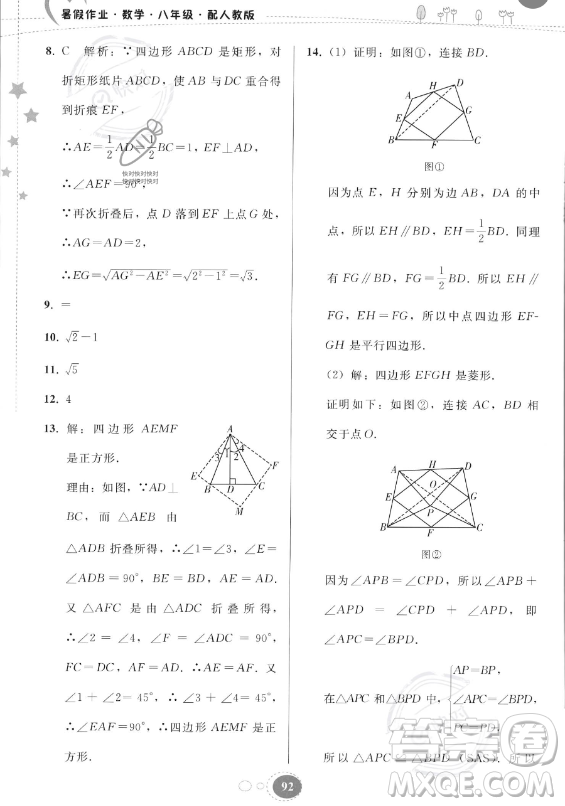 暑假作业·数学·八年级·配人教版
8. C 解析:∵四边形 ABCD 是矩形,对
折矩形纸片 ABCD,使 AB 与 DC 重合得
到折痕 EF,
∴AE=1/2AD=1/2BC=1,EF⊥AD,
∴∠AEF=90°,
∵再次折叠后,点 D 落到 EF 上点 G 处,
∴AG=AD=2,
∴EG=√(AG²-AE²)=√(2²-1²)=√3.
9. =
10. √2-1
11. √5
12. 4
13. 解:四边形 AEMF
是正方形.
理由:如图,∵AD⊥
BC,而△AEB 由
△ADB 折叠所得,∴∠1=∠3,∠E=
∠ADB=90°,BE=BD,AE=AD.
又△AFC 是由△ADC 折叠所得,
∴∠2=∠4,∠F=∠ADC=90°,
FC=DC,AF=AD.∴AE=AF.又
∠1+∠2=45°,∴∠3+∠4=45°,
∴∠EAF=90°.∴四边形 AEMF 是正
方形.
A
3 1 2 4
E
F
B D C
M
14. (1)证明:如图①,连接 BD.
H D
A
E G
B F C
图①
因为点 E,H 分别为边 AB,DA 的中
点,所以 EH∥BD,EH=1/2BD.同理
有 FG∥BD,FG=1/2BD.所以 EH∥
FG,EH=FG,所以中点四边形 EF-
GH 是平行四边形.
(2)解:四边形 EFGH 是菱形.
证明如下:如图②,连接 AC,BD 相
交于点 O.
A H D
O
E G
P
B F C
图②
因为∠APB=∠CPD,所以∠APB+
∠APD=∠CPD+∠APD,即
∠APC=∠BPD.
AP=BP,
在△APC 和△BPD 中,{∠APC=∠BPD,
所以△APC≌△BPD(SAS).所以
快对快对快对
快对快对快对
答案卷
MXQE.COM
92